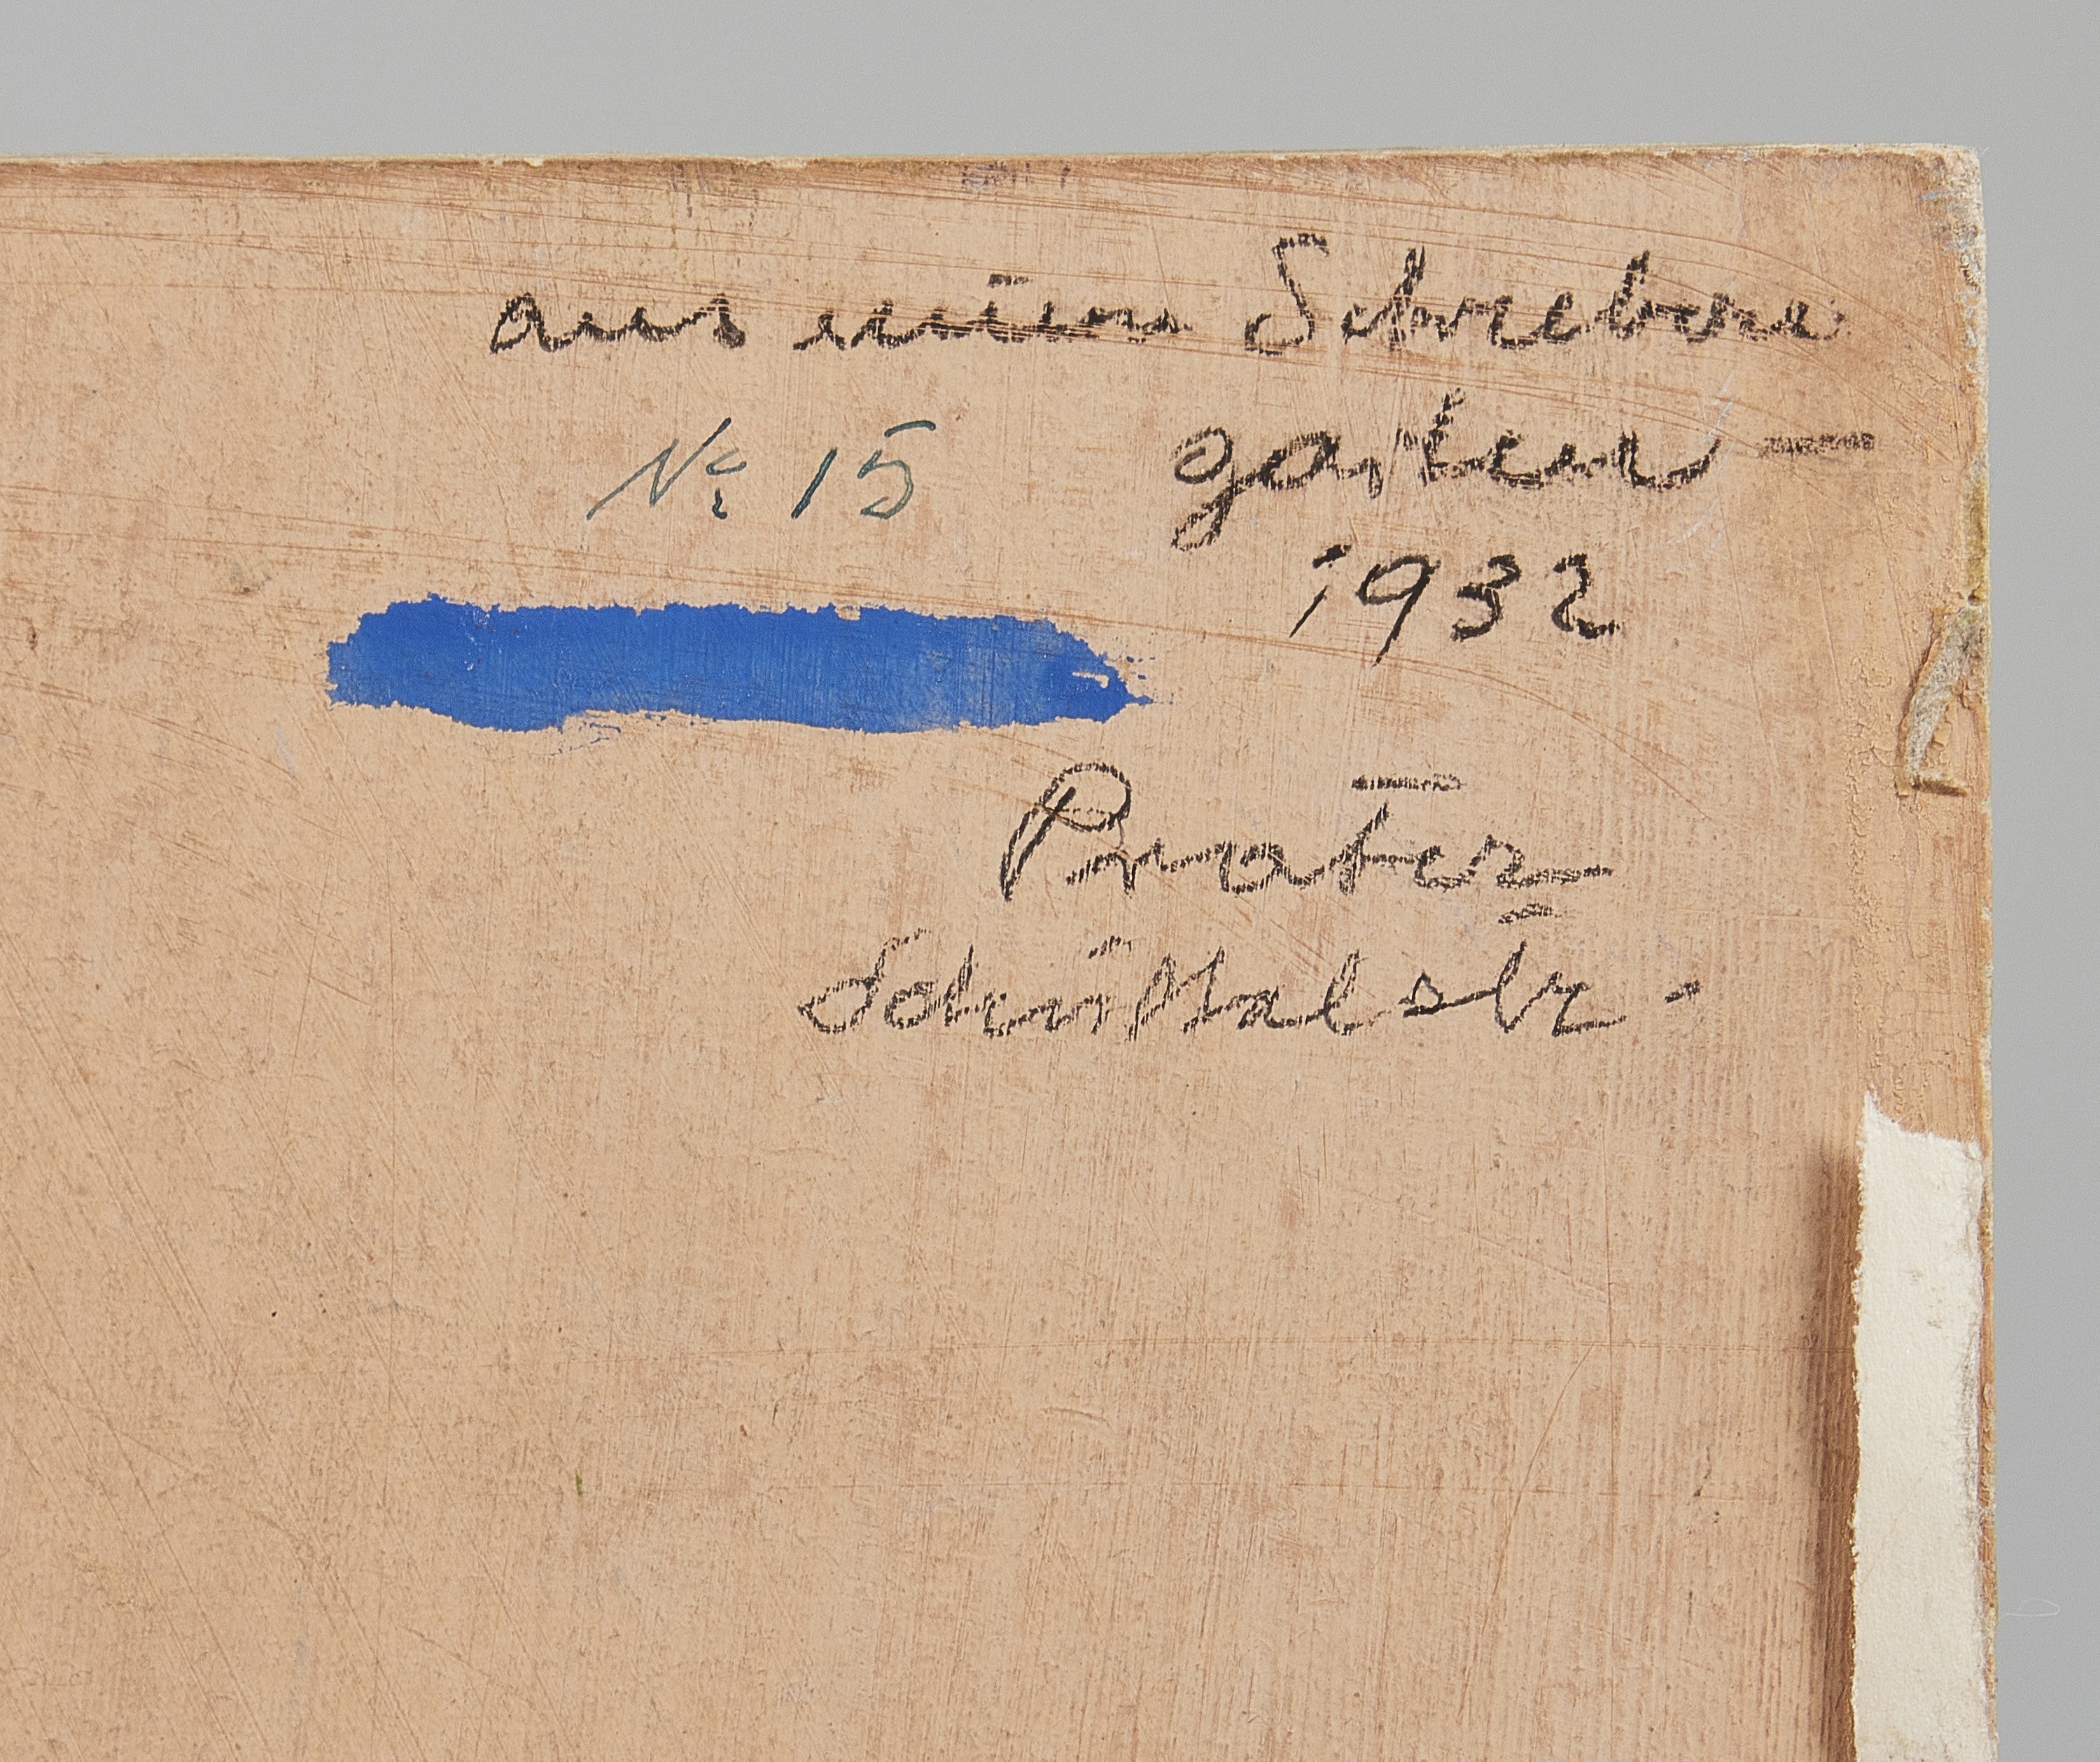 aus Schreber
№ 15 garten —
1932
Prater
Schüttelstr.